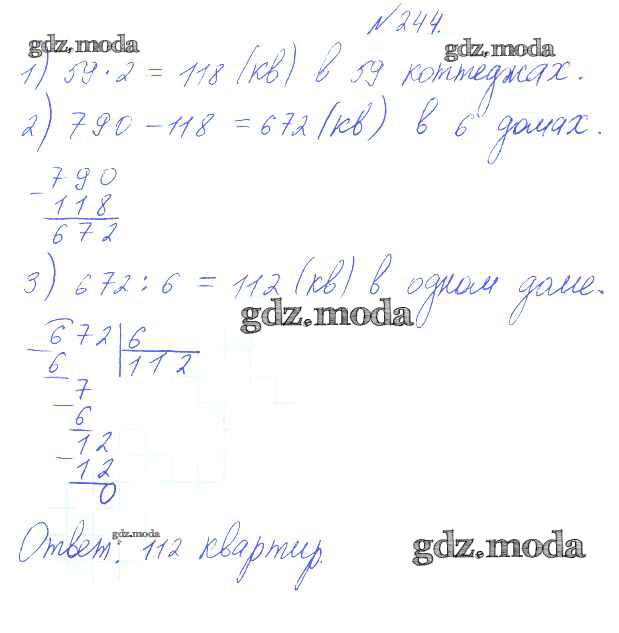 №244.
gdz.moda gdz.moda
1) 59·2 = 118 (кв) в 59 коттеджах.
2) 790 – 118 = 672 (кв) в 6 домах.
– 790
118
672
3) 672 : 6 = 112 (кв) в одном доме.
gdz.moda
– 672 | 6
6 112
– 7
6
– 12
12
0
gdz.moda
Ответ: 112 квартир.
gdz.moda